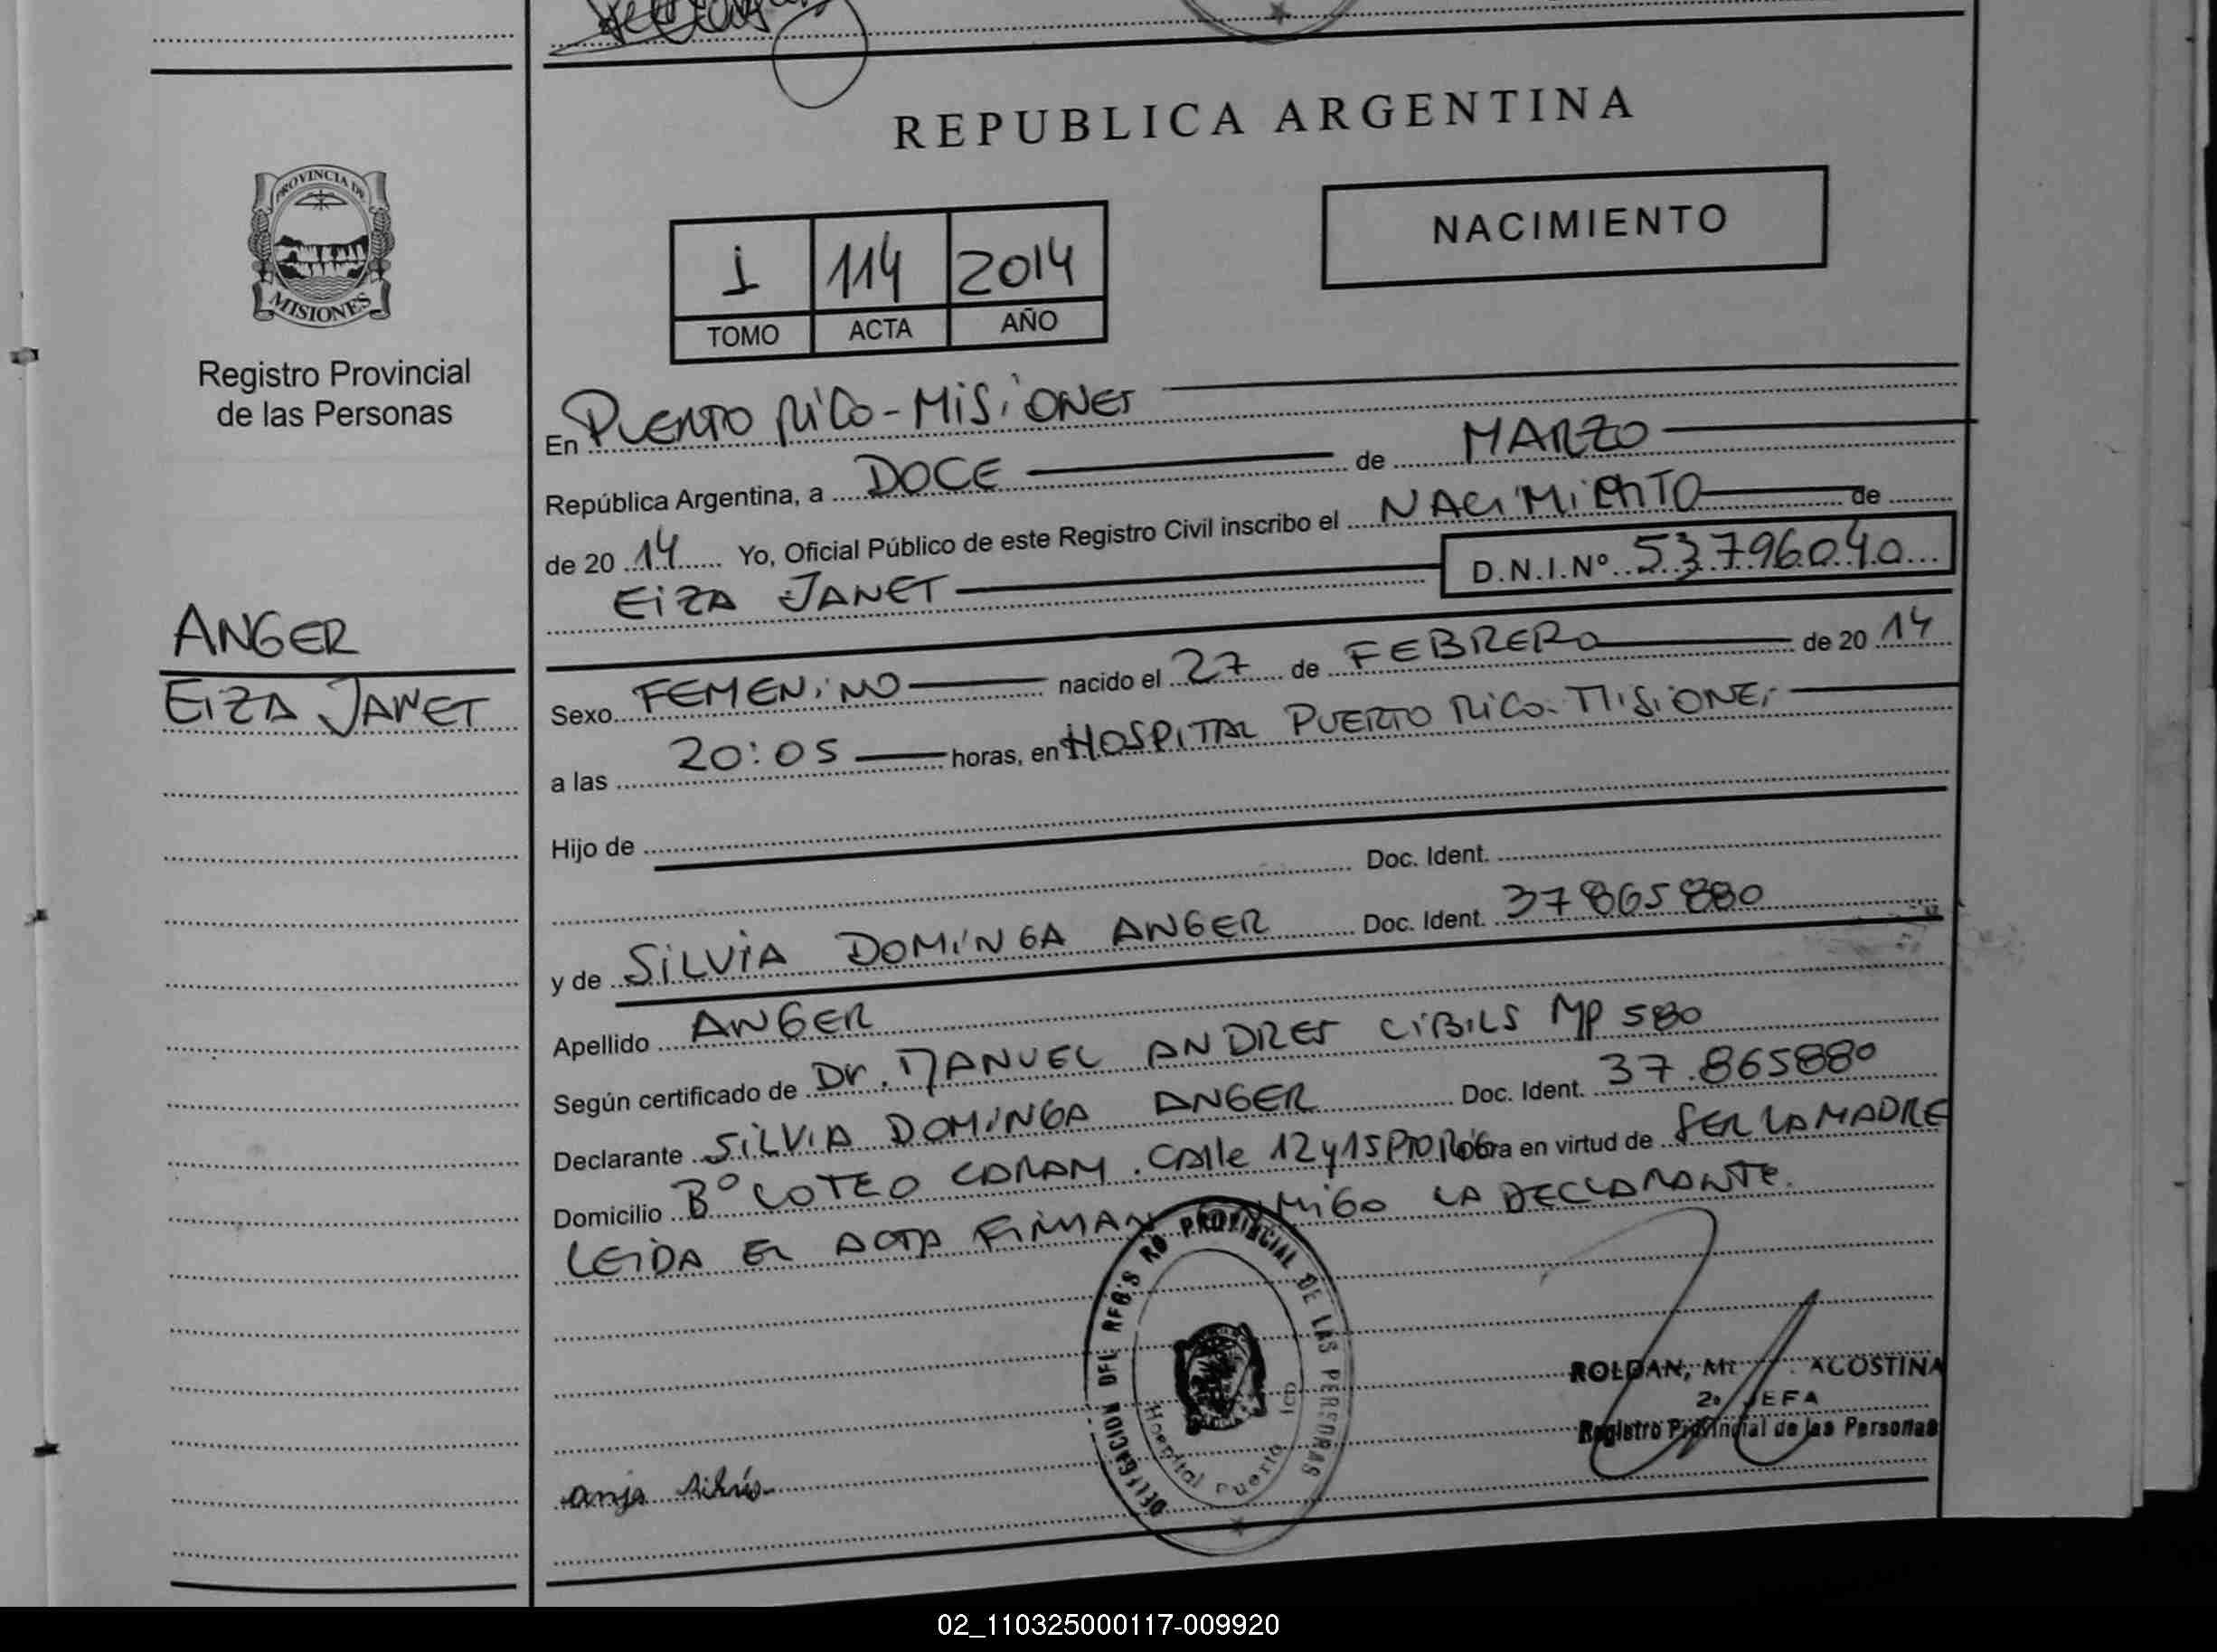 REPUBLICA ARGENTINA
NACIMIENTO
1 114 2014
TOMO ACTA AÑO
PROVINCIA DE
MISIONES
Registro Provincial
de las Personas
ANGER
EIZA JANET
En PUERTO RICO - MISIONES
República Argentina, a DOCE de MARZO
de 20 14 Yo, Oficial Público de este Registro Civil inscribo el NACIMIENTO de
EIZA JANET D.N.I.Nº 53796040
Sexo FEMENINO nacido el 27 de FEBRERO de 20 14
a las 20:05 horas, en HOSPITAL PUERTO RICO - MISIONES
Hijo de
Doc. Ident.
y de SILVIA DOMINGA ANGER Doc. Ident. 37865880
Apellido ANGER
Según certificado de Dr. MANUEL ANDRES CIBILS MP 580
Declarante SILVIA DOMINGA ANGER Doc. Ident. 37.865880
Domicilio Bº LOTEO CARAM. CAlle 12 y 15 PTO RICO Obra en virtud de SER LA MADRE
LEIDA EL ACTA FIRMAN CONMIGO LA DECLARANTE.
DELEGACION DEL REGISTRO PROVINCIAL DE LAS PERSONAS
Hospital Puerto Rico
ROLDAN, AGOSTINA
JEFA
Registro Provincial de las Personas
02_110325000117-009920